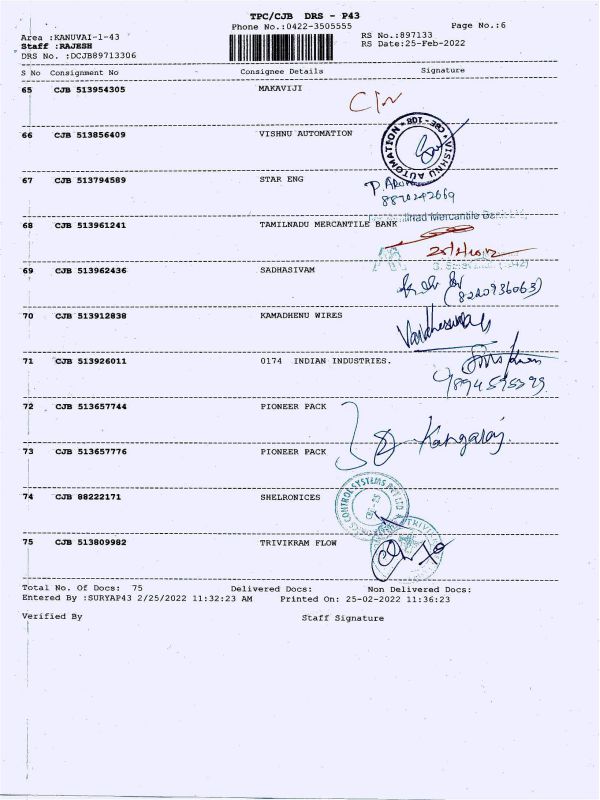 TPC/CJB DRS - P43
Phone No.:0422-3505555
Page No.:6
Area :KANUVAI-1-43
RS No.:897133
Staff :RAJESH
RS Date:25-Feb-2022
DRS No. :DCJB89713306
S No Consignment No Consignee Details Signature
65 CJB 513954305 MAKAVIJI
66 CJB 513856409 VISHNU AUTOMATION
VISHNU AUTOMATION * CBE-108 *
67 CJB 513794589 STAR ENG
P. Arun
8870242669
68 CJB 513961241 TAMILNADU MERCANTILE BANK
Mercantile
69 CJB 513962436 SADHASIVAM
(8220936063)
70 CJB 513912838 KAMADHENU WIRES
71 CJB 513926011 0174 INDIAN INDUSTRIES.
9894595399
72 CJB 513657744 PIONEER PACK
Kangaraj.
73 CJB 513657776 PIONEER PACK
74 CJB 88222171 SHELRONICES
CONTROL SYSTEMS PVT LTD
75 CJB 513809982 TRIVIKRAM FLOW
TRIVIK
Total No. Of Docs: 75 Delivered Docs: Non Delivered Docs:
Entered By :SURYAP43 2/25/2022 11:32:23 AM Printed On: 25-02-2022 11:36:23
Verified By Staff Signature